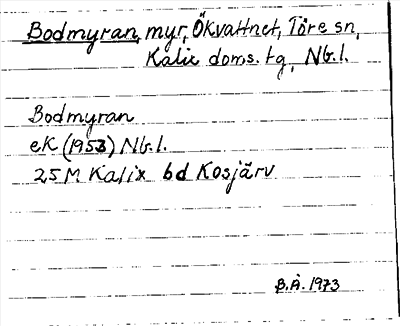 Bodmyran, myr, Ökvattnet, Töre sn,
Kalix doms. tg, Nb. l.
Bodmyran
eK (1953) Nb. l.
25M Kalix bd Kosjärv
B.Å. 1973